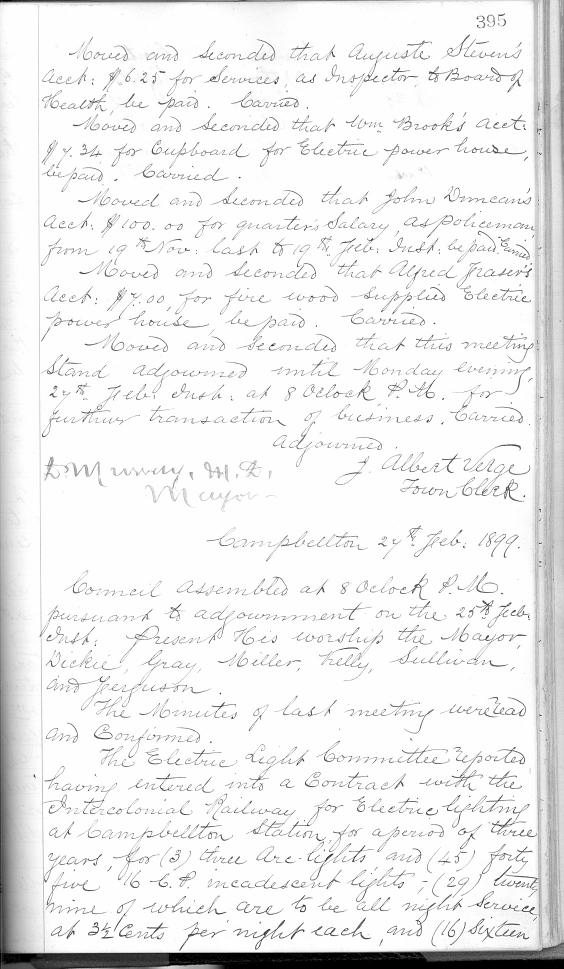 395
Moved and Seconded that Auguste Steven's
Acct: $6.25 for Services, as Inspector, to Board of
Health, be paid. Carried.
Moved and Seconded that Wm. Brook's Acct:
$7.34 for Cupboard for Electric power house,
be paid. Carried.
Moved and Seconded that John Duncan's
Acct: $100.00 for quarter's Salary, as Policeman
from 19th Nov: last to 19th Feb: Inst: be paid. Carried
Moved and Seconded that Alfred Fraser's
Acct: $7.00, for fire wood Supplied Electric
power house, be paid. Carried.
Moved and Seconded that this meeting
Stand adjourned until Monday evening,
27th Feb: Inst: at 8 Oclock P.M. for
further transaction of business. Carried.
Adjourned.
D. Murray, M.D.
Mayor
J. Albert Verge
Town Clerk.
Campbellton 27th Feb: 1899.
Council Assembled at 8 Oclock P.M.
pursuant to adjournment on the 25th Feb:
Inst: Present His worship the Mayor,
Dickie, Gray, Miller, Kelly, Sullivan,
and Ferguson.
The Minutes of last meeting were read
and Confirmed.
The Electric Light Committee reported
having entered into a Contract with the
Intercolonial Railway for Electric lighting
at Campbellton Station, for a period of three
years, for (3) three Arc-lights and (45) forty
five 16 C.P. incadescent lights,- (29) twenty
nine of which are to be all night Service,
at 3½ Cents per night each, and (16) Sixteen